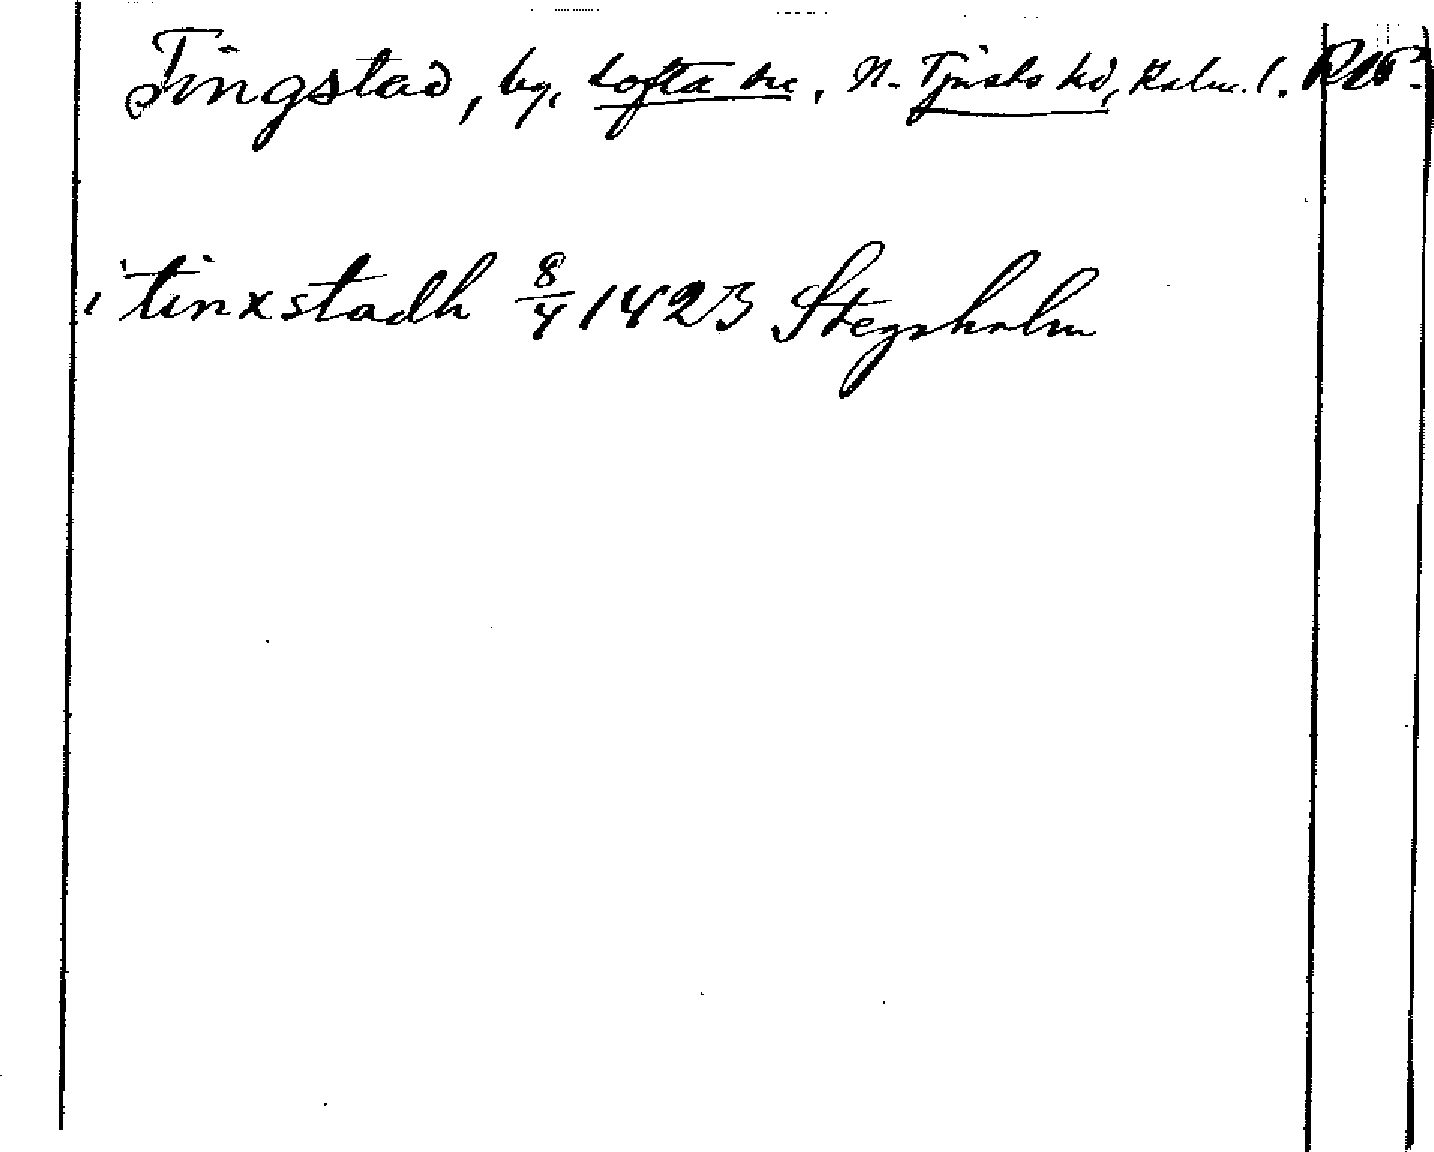 Tingstad, by, Lofta sn, N. Tjusts hd, Kalm. l. RAP.
i tinxstadh 8/4 1423 Stegsholm